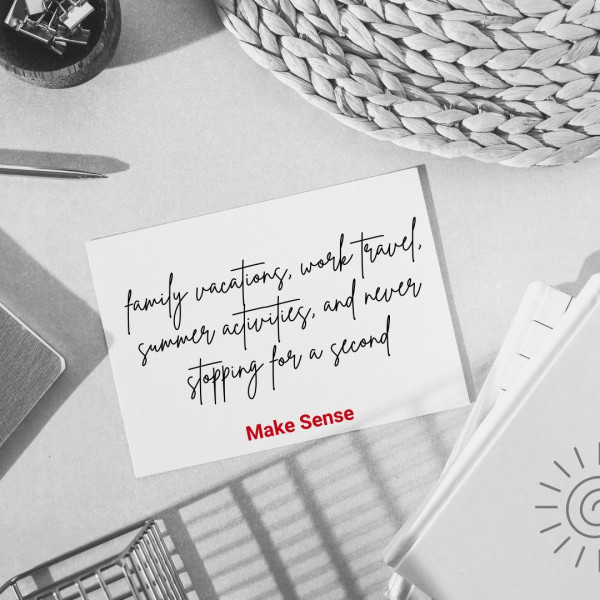 family vacations, work travel,
summer activities, and never
stopping for a second
Make Sense